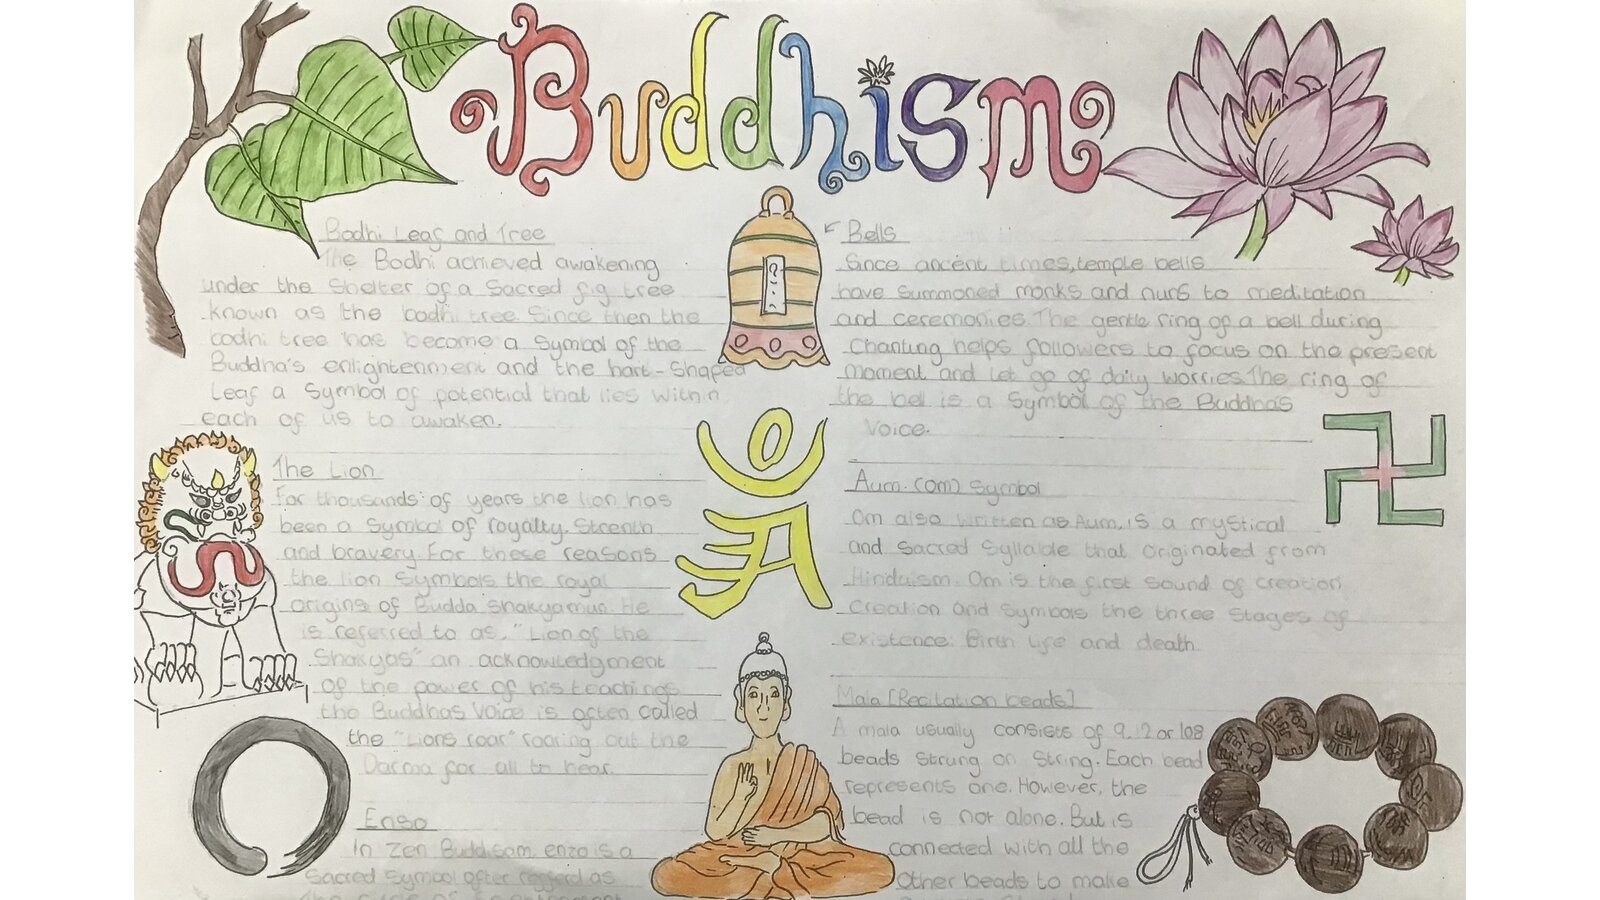 Buddhism
Bodhi Leaf and Tree
The Bodhi achieved awakening
under the shelter of a Sacred fig tree
known as the bodhi tree. Since then the
bodhi tree has become a Symbol of the
Buddha's enlightenment and the hart-Shaped
Leaf a Symbol of potential that lies within
each of us to awaken.
The Lion
For thousands of years the lion has
been a Symbol of royalty. Strenth
and bravery. For these reasons
the lion Symbols the royal
origins of Budda Shakyamuni. He
is referred to as, "Lion of the
Shakyas" an acknowledgment
of the power of his teachings
the Buddhas Voice is often called
the "Lions roar" roaring out the
Darma for all to hear.
Enso
In Zen Buddisam, enzo is a
Sacred Symbol often regferd as
Bells
Since ancent times, temple bells
have summoned monks and nuns to meditation
and ceremonies. The gentle ring of a bell during
Chanting helps followers to focus on the present
moment and let go of daily worries. The ring of
the bell is a Symbol of the Buddha's
Voice.
Aum. (om) Symbol
Om also written as Aum, is a mystical
and Sacred Syllable that originated from
Hinduism. Om is the first Sound of creation,
Creation and Symbols the three Stages of
existence: Birth life and death.
Mala [Recitation beads]
A mala usually consists of 9.12 or 108
beads Strung on String. Each bead
represents one. However, the
bead is not alone. But is
connected with all the
Other beads to make